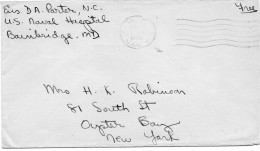 Ens. D.A. Porter, N.C.
Free
U.S. Naval Hospital
Bainbridge, MD
Mrs H. K. Robinson
81 South St
Oyster Bay
New York